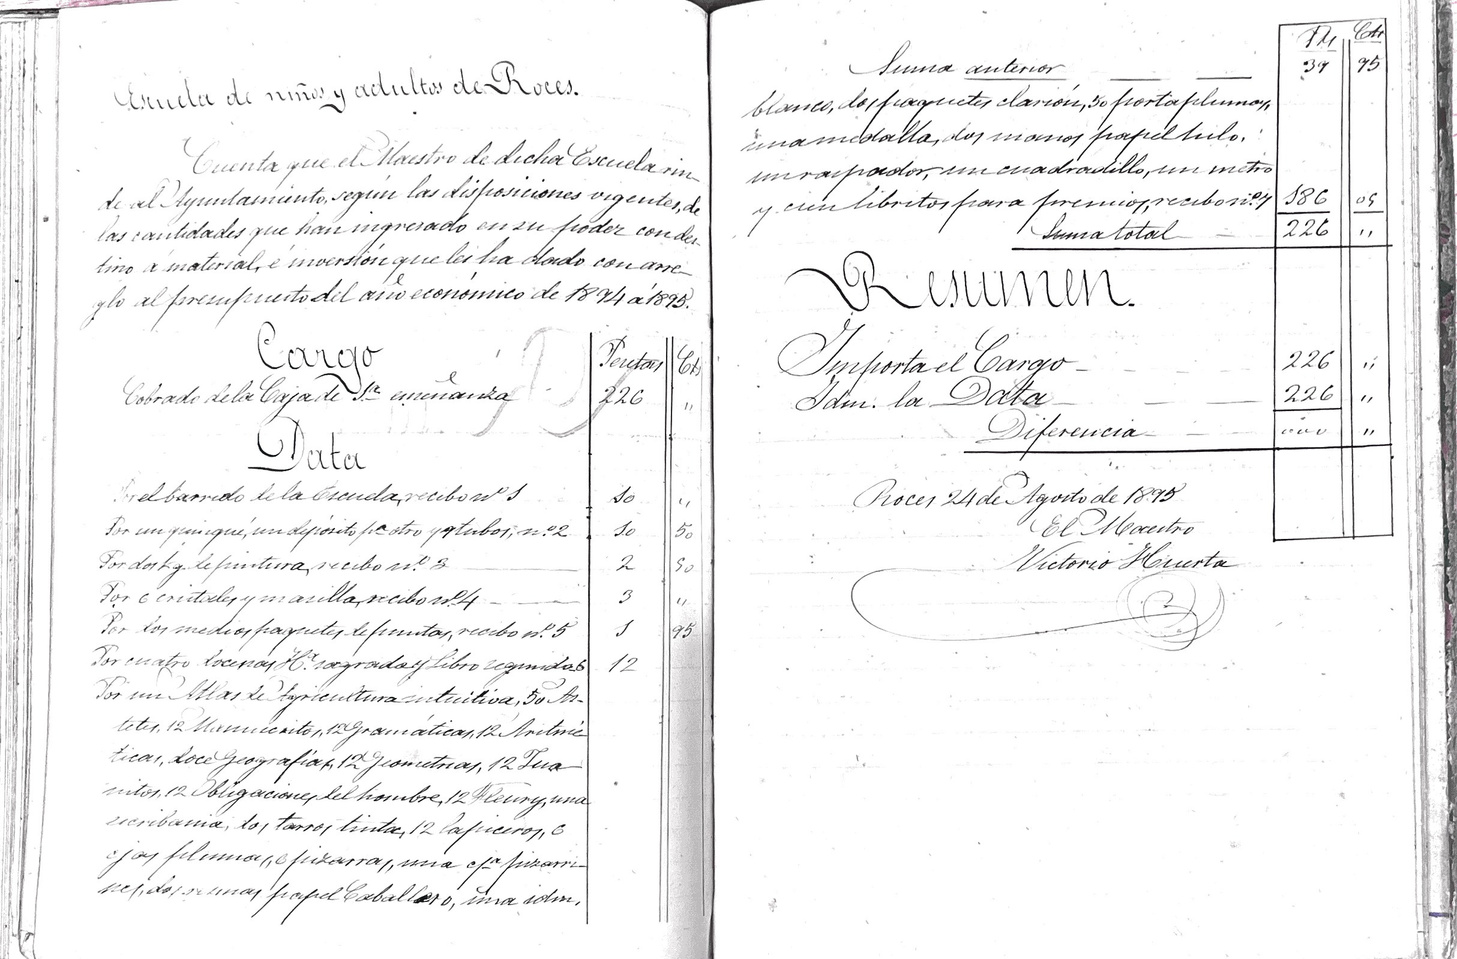 Escuela de niños y adultos de Roces.
Cuenta que el Maestro de dicha Escuela rin-
de al Ayuntamiento, según las disposiciones vigentes, de
las cantidades que han ingresado en su poder con des-
tino á material, é inversión que les ha dado con arre-
glo al presupuesto del año económico de 1894 á 1895.
Cargo Pesetas Cts
Cobrado de la Caja de 1ª enseñanza 226 "
Data
Por el barrido de la Escuela, recibo nº 1 10 "
Por un quinqué, un depósito pª otro y 9 tubos, nº 2 10 50
Por dos kg. de pintura, recibo nº 3 2 50
Por 6 cristales y masilla, recibo nº 4 3 "
Por dos medios paquetes de puntas, recibo nº 5 1 95
Por cuatro docenas Hª sagrada y Libro segundo 6 12
Por un Atlas de Agricultura intuitiva, 50 As-
tetes, 12 Manuscritos, 12 Gramáticas, 12 Aritmé-
ticas, doce Geografías, 12 Geometrias, 12 Jua-
nitos, 12 Obligaciones del hombre, 12 Fleury, una
escribania, dos tarros tinta, 12 lapiceros, 6
cjas plumas, 6 pizarras, una cjª pizarri-
nes, dos resmas papel Caballero, una idm.
Pts Cts
Suma anterior 39 95
blanco, dos paquetes clarión, 50 portaplumas,
una medalla, dos manos papel hilo,
un raspador, un cuadradillo, un metro
y cien libritos para premios, recibo nº 7 186 05
Suma total 226 "
Resumen.
Importa el Cargo 226 "
Idm. la Data 226 "
Diferencia 000 "
Roces 24 de Agosto de 1895
El Maestro
Victorio Huerta